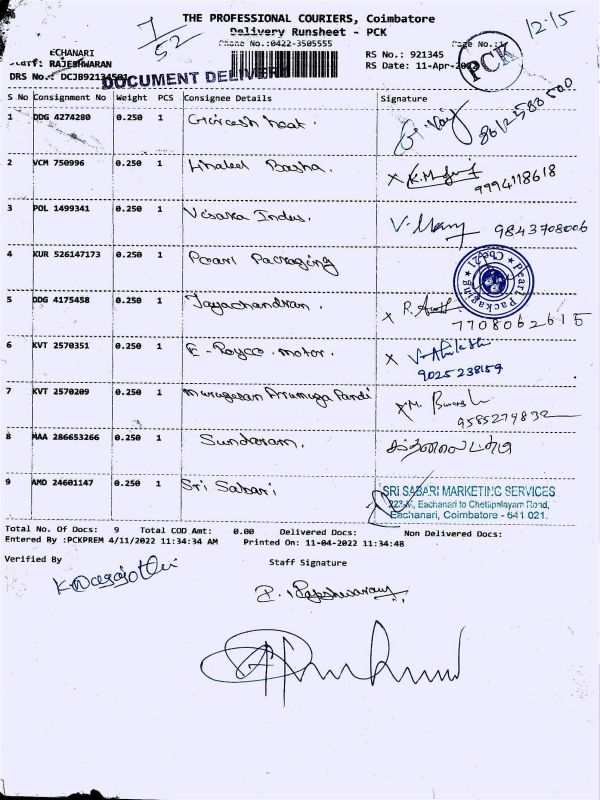 THE PROFESSIONAL COURIERS, Coimbatore
Delivery Runsheet - PCK
Phone No.:0422-3505555
7/52
12.15
PCK
ECHANARI
Staff: RAJESHWARAN
DRS No.: DCJB92134501
DOCUMENT DELIVERY
RS No.: 921345
RS Date: 11-Apr-2022
Page No.:1
S No Consignment No Weight PCS Consignee Details Signature
1 DDG 4274280 0.250 1 Girresh heat. 8612580500
2 VCM 750996 0.250 1 Basha. 9994118618
3 POL 1499341 0.250 1 Visaka Indus. V. Mary 9843708006
4 KUR 526147173 0.250 1 Pearl Packaging Pearl Packaging CBE-21
5 DDG 4175458 0.250 1 Jayachandran. 7708062615
6 KVT 2570351 0.250 1 E-Royco. motor. 9025238159
7 KVT 2570209 0.250 1 Murugesan Arumuga Pandi 9585279832
8 MAA 286653266 0.250 1 Sundaram.
9 AMD 24601147 0.250 1 Sri Sabari
SRI SABARI MARKETING SERVICES
Eachanari to Chettipalayam Road,
Eachanari, Coimbatore - 641 021.
Total No. Of Docs: 9 Total COD Amt: 0.00 Delivered Docs: Non Delivered Docs:
Entered By :PCKPREM 4/11/2022 11:34:34 AM Printed On: 11-04-2022 11:34:48
Verified By Staff Signature